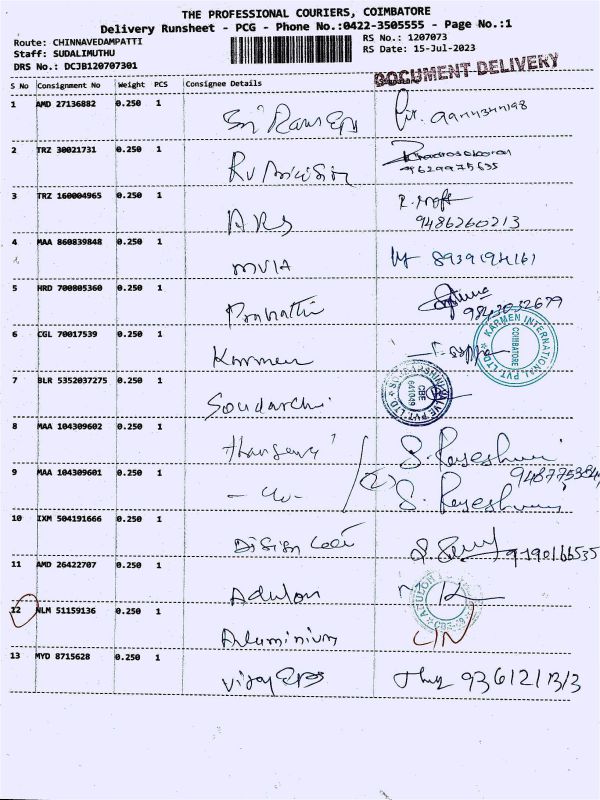 THE PROFESSIONAL COURIERS, COIMBATORE
Delivery Runsheet - PCG - Phone No.:0422-3505555 - Page No.:1
Route: CHINNAVEDAMPATTI
RS No.: 1207073
Staff: SUDALIMUTHU
RS Date: 15-Jul-2023
DRS No.: DCJB120707301
DOCUMENT DELIVERY
S No Consignment No Weight PCS Consignee Details
1 AMD 27136882 0.250 1
Sri Ram Eps
2 TRZ 30021731 0.250 1
9629975635
3 TRZ 160004965 0.250 1
ARS
9486260213
4 MAA 860839848 0.250 1
MVIA 8939194161
5 HRD 700805360 0.250 1
Prabathi 9843032679
6 CGL 70017539 0.250 1
Karmen
KARMEN INTERNATIONAL PVT LTD
COIMBATORE
7 BLR 5352037275 0.250 1
CBE
641049
VALVE PVT. LTD
8 MAA 104309602 0.250 1
S. Rajeshwari
9 MAA 104309601 0.250 1
(2) S. Rajeshwari
10 IXM 504191666 0.250 1
9190166535
11 AMD 26422707 0.250 1
Adulon
ADULON
12 NLM 51159136 0.250 1
Aluminium
13 MYD 8715628 0.250 1
Vijay Eps